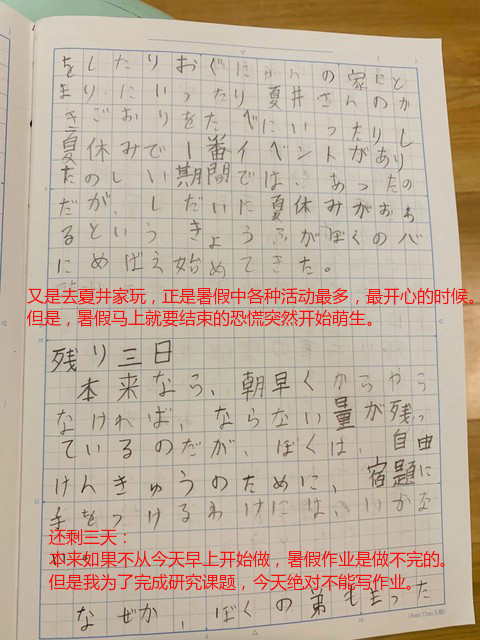 をしたりおぐにかんの家にと
まり、にいったり夏井さんのか
きごおりをたべにいったりし
夏休みで一番イベントがあり
たのしい期間では、あったの
だが、しだいに夏休みがおわ
るというきょうふがぼくの心
にめばえ始めてきた。
又是去夏井家玩，正是暑假中各种活动最多，最开心的时候。
但是，暑假马上就要结束的恐慌突然开始萌生。
残り三日
本来なら、朝早くからやら
なければ、ならない量が残っ
ているのだが、ぼくは、自由
けんきゅうのために、宿題に
手をつけるわけには、いかな
还剩三天：
本来如果不从今天早上开始做，暑假作业是做不完的。
但是我为了完成研究课题，今天绝对不能写作业。
なぜか、ぼくの弟もまった